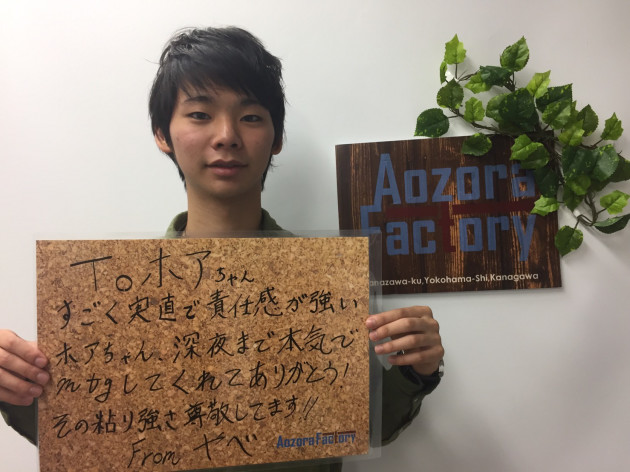 Aozora
Factory
nazawa-ku,Yokohama-Shi,Kanagawa
To ホアちゃん
すごく実直で責任感が強い
ホアちゃん、深夜まで本気で
mtgしてくれてありがとう!
その粘り強さ尊敬してます!!
From ヤベ
Aozora Factory